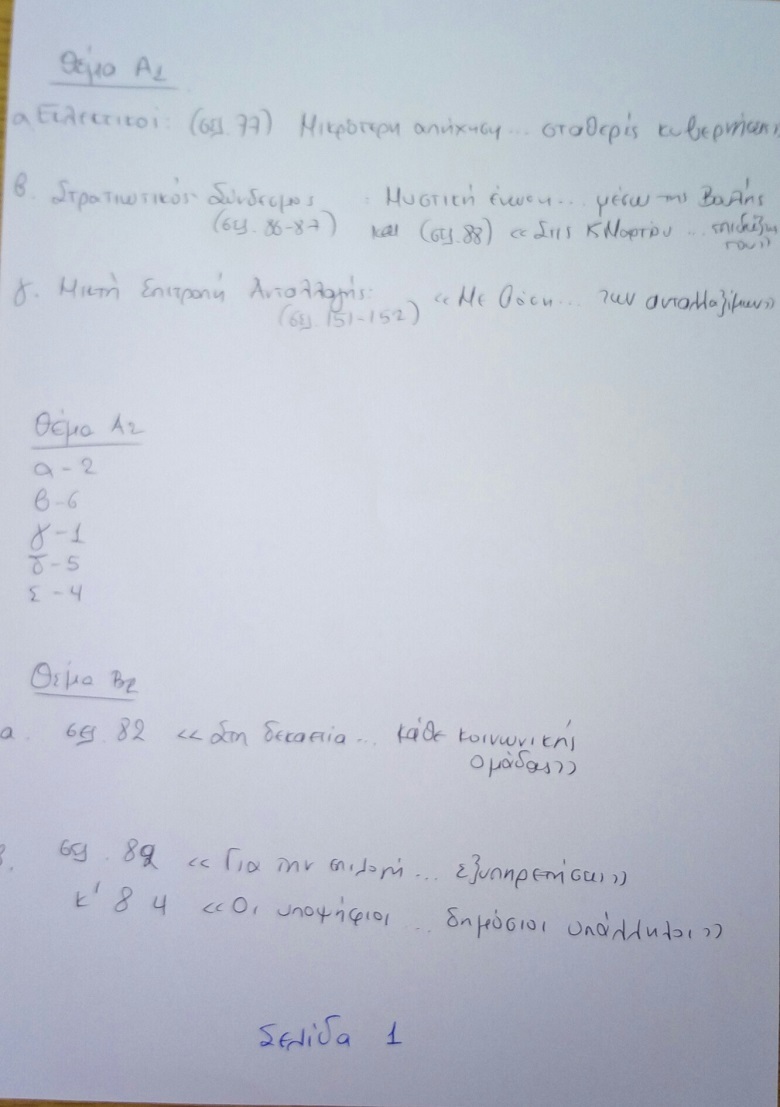 Θέμα Α1
α Εκλεκτικοί: (σελ. 77) Μικρότερη απήχηση... σταθερής κυβερνήσεως»
β. Στρατιωτικός Σύνδεσμος : Μυστική ένωση... μέσω της Βουλής
(σελ. 86-87) και (σελ. 88) «Στις 15 Μαρτίου ...
του»
γ. Μικτή Επιτροπή Ανταλλαγής: «Με βάση... των ανταλλαξίμων»
(σελ. 151-152)
Θέμα Α2
α - 2
β - 6
γ - 1
δ - 5
ε - 4
Θέμα Β2
α. σελ. 82 «Στη δεκαετία... κάθε κοινωνικής
ομάδας»
σελ. 82 «Για την επιλογή... εξυπηρετήσει»
κ' 84 «Οι υποψήφιοι ... δημόσιοι υπάλληλοι»
Σελίδα 1